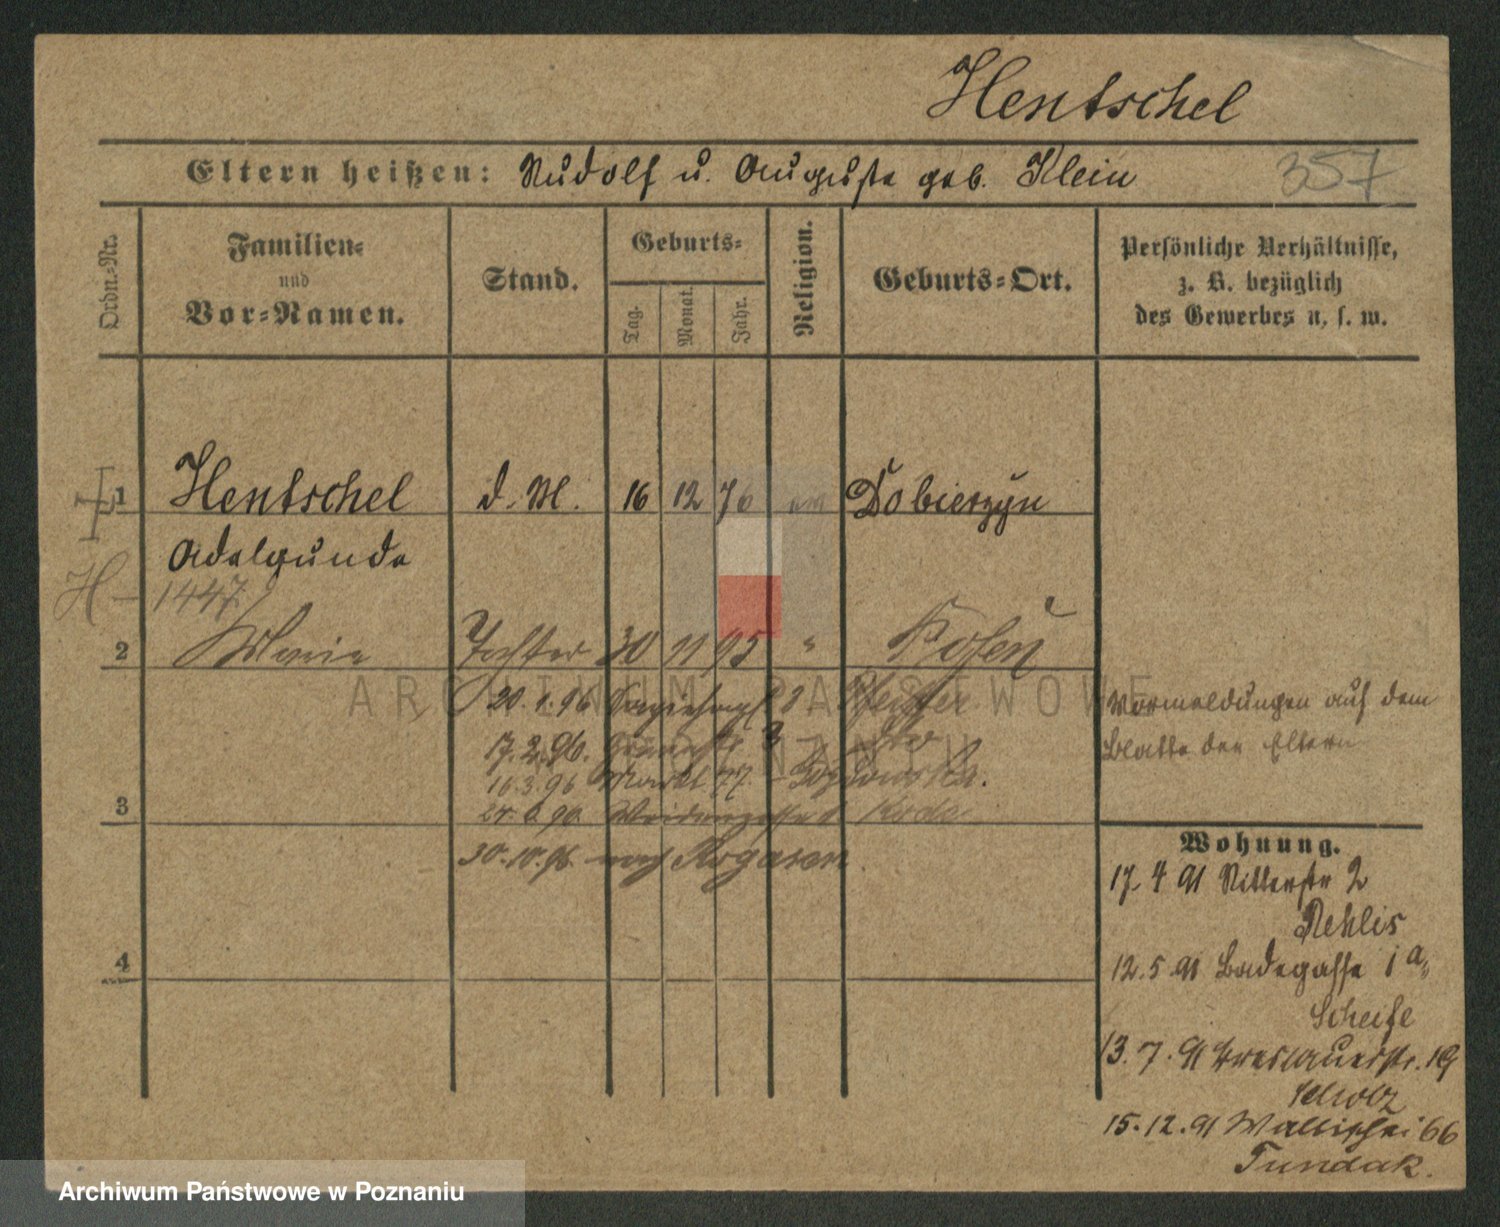 Hentschel
Eltern heißen: Rudolf u. Auguste geb. Klein
357
Ordn.-Nr.
Familien-
und
Vor-Namen.
Stand.
Geburts-
Tag.
Monat.
Jahr.
Religion.
Geburts-Ort.
Persönliche Verhältnisse,
z. B. bezüglich
des Gewerbes u. s. w.
1 Hentschel d. M. 16 12 76 Dobierzyn
Adelgunde
H - 1447
2 Marie Tochter 30 11 95 " Posen
20.1.96
Vormeldungen auf dem
Blatte der Eltern
17.2.96.
16.3.96 Markt 77.
3
30.10.96 nach Rogasen
Wohnung.
17.4.91 Ritterstr 2
Rehlis
4
12.5.91 Badegasse 1a
Scheife
13.7.91 Breslauerstr. 19
Scholz
15.12.91 Wallischei 66
Tundak.
ARCHIWUM PAŃSTWOWE
W POZNANIU
Archiwum Państwowe w Poznaniu